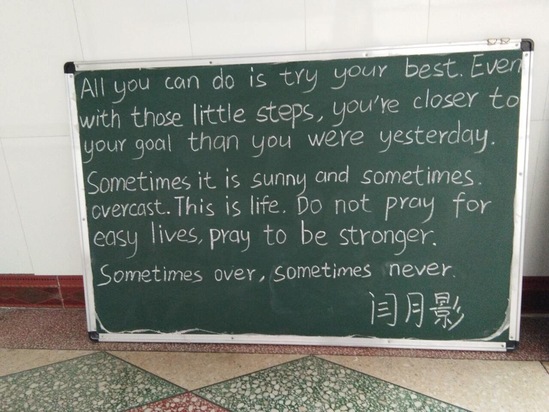 All you can do is try your best. Even
with those little steps, you're closer to
your goal than you were yesterday.
Sometimes it is sunny and sometimes.
overcast. This is life. Do not pray for
easy lives, pray to be stronger.
Sometimes over, sometimes never.
闫月影